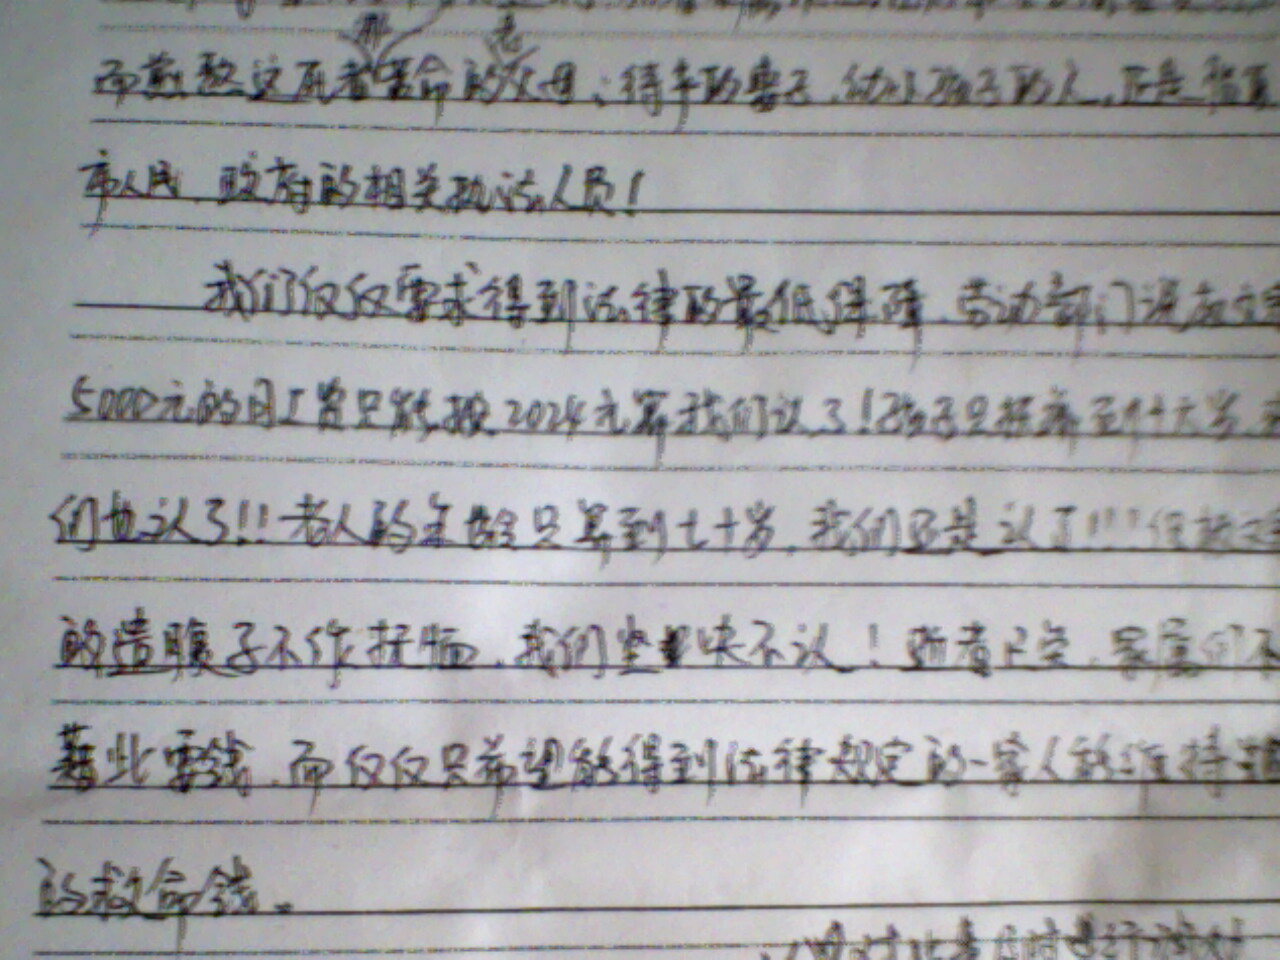 那 老
而煎熬这死者苦命的父母、待产的妻子、幼小孩子的人,正是
市人民政府的相关执法人员!
我们仅仅要求得到法律的最低保障,劳动部门说
5000元的月工资只能按2024元算我们认了!孩子只抚养至十六岁
们也认了!!老人的年龄只算到七十岁,我们还是认了!!!但
的遗腹子不作抚恤,我们坚决不认!逝者已矣,家属们不
藉此要钱,而仅仅只希望能得到法律规定的一家人能维持
的救命钱。